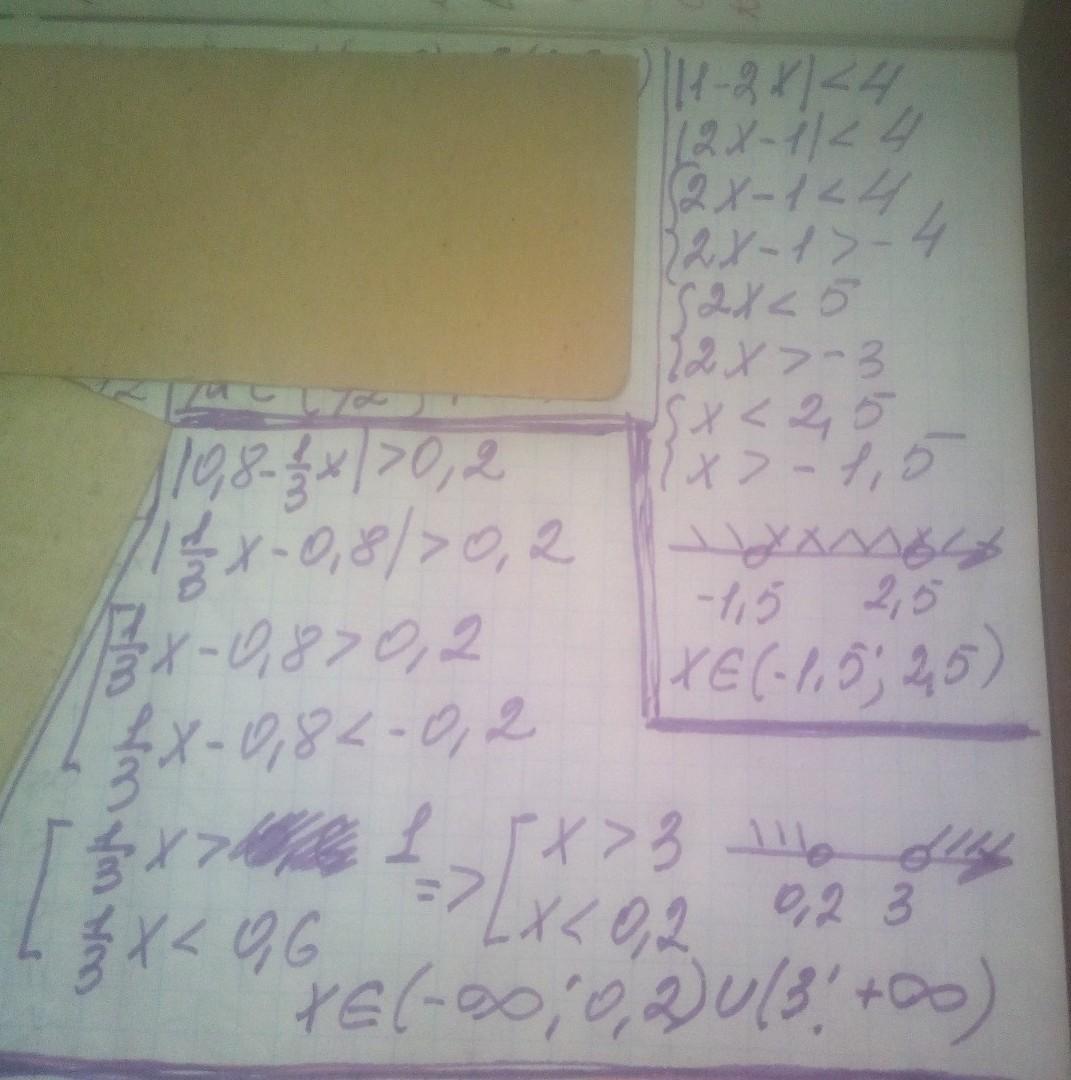 |1-2x|<4
|2x-1|<4
{2x-1<4
{2x-1>-4
{2x<5
{2x>-3
{x<2,5
{x>-1,5
-1,5 2,5
x∈(-1,5; 2,5)
|0,8-1/3x|>0,2
|1/3x-0,8|>0,2
[1/3x-0,8>0,2
1/3x-0,8<-0,2
[1/3x> 1
1/3x<0,6
=> [x>3
x<0,2
0,2 3
x∈(-∞; 0,2)∪(3; +∞)